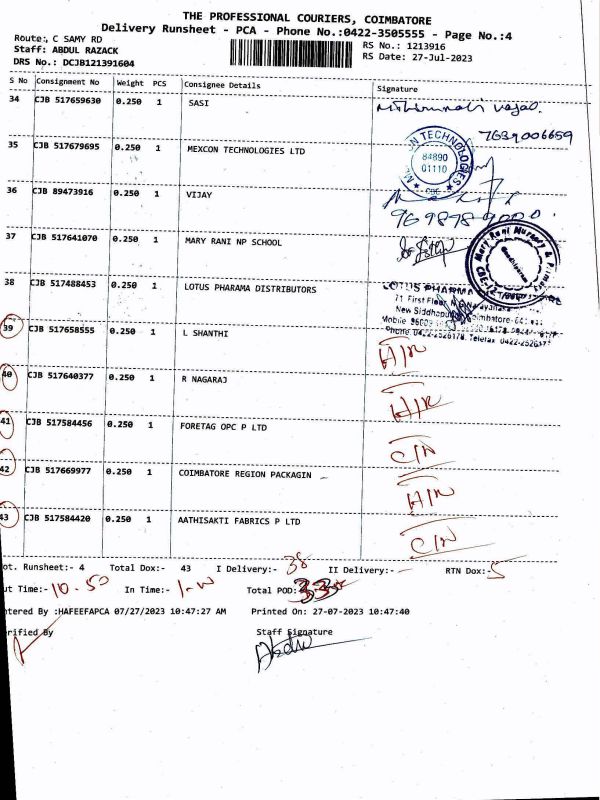 THE PROFESSIONAL COURIERS, COIMBATORE
Delivery Runsheet - PCA - Phone No.:0422-3505555 - Page No.:4
Route: C SAMY RD
RS No.: 1213916
Staff: ABDUL RAZACK
RS Date: 27-Jul-2023
DRS No.: DCJB121391604
S No Consignment No Weight PCS Consignee Details Signature
34 CJB 517659630 0.250 1 SASI
7639006659
35 CJB 517679695 0.250 1 MEXCON TECHNOLOGIES LTD
TECHNOLOGIES
84890
01110
CBE
36 CJB 89473916 0.250 1 VIJAY
37 CJB 517641070 0.250 1 MARY RANI NP SCHOOL
Mary Rani Nursery & Primary
38 CJB 517488453 0.250 1 LOTUS PHARAMA DISTRIBUTORS
LOTUS PHARMA
71 First Floor, N.G.Narayanasamy
New Siddhapudur, Coimbatore
39 CJB 517658555 0.250 1 L SHANTHI
40 CJB 517640377 0.250 1 R NAGARAJ
41 CJB 517584456 0.250 1 FORETAG OPC P LTD
42 CJB 517669977 0.250 1 COIMBATORE REGION PACKAGIN
43 CJB 517584420 0.250 1 AATHISAKTI FABRICS P LTD
ot. Runsheet:- 4 Total Dox:- 43 I Delivery:- 38 II Delivery:- RTN Dox:- 5
ut Time:- 10.50 In Time:- Total POD:
ntered By :HAFEEFAPCA 07/27/2023 10:47:27 AM Printed On: 27-07-2023 10:47:40
erified By Staff Signature